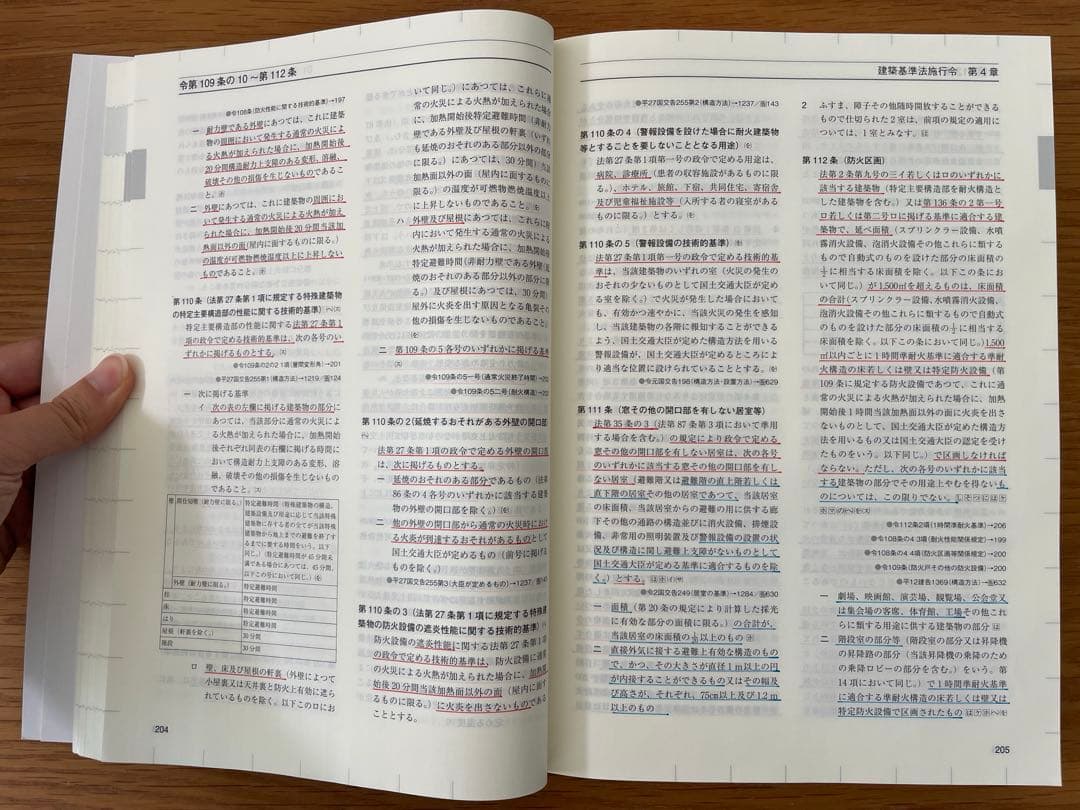 令第109条の10～第112条
●令108条(防火性能に関する技術的基準)→197
一 耐力壁である外壁にあつては、これに建築
物の周囲において発生する通常の火災によ
る火熱が加えられた場合に、加熱開始後
20分間構造耐力上支障のある変形、溶融、
破壊その他の損傷を生じないものであるこ
と。
二 外壁にあつては、これに建築物の周囲にお
いて発生する通常の火災による火熱が加え
られた場合に、加熱開始後20分間当該加
熱面以外の面(屋内に面するものに限る。)
の温度が可燃物燃焼温度以上に上昇しない
ものであること。
第110条(法第27条第1項に規定する特殊建築物
の特定主要構造部の性能に関する技術的基準)
特定主要構造部の性能に関する法第27条第1
項の政令で定める技術的基準は、次の各号のい
ずれかに掲げるものとする。
●令109条の2の2 1項(層間変形角)→201
●平27国交告255第1(構造方法)→1219/画124
一 次に掲げる基準
イ 次の表の左欄に掲げる建築物の部分に
あつては、当該部分に通常の火災による
火熱が加えられた場合に、加熱開始
後それぞれ同表の右欄に掲げる時間
において構造耐力上支障のある変形、溶
融、破壊その他の損傷を生じないもので
あること。
間仕切壁(耐力壁に限る。)
特定避難時間(特殊建築物の構造、
建築設備及び用途に応じて当該特殊
建築物に存する者の全てが当該特殊
建築物から地上までの避難を終了す
るまでに要する時間をいう。以下
同じ。)(特定避難時間が45分間未
満である場合にあつては、45分間。
以下この号において同じ。)
外壁(耐力壁に限る。) 特定避難時間
柱 特定避難時間
床 特定避難時間
はり 特定避難時間
屋根(軒裏を除く。) 30分間
階段 30分間
ロ 壁、床及び屋根の軒裏(外壁によつて
小屋裏又は天井裏と防火上有効に遮ら
れているものを除く。以下この口にお
204
いて同じ。)にあつては、これらに通
常の火災による火熱が加えられた場合
に、加熱開始後特定避難時間(非耐力
壁である外壁及び屋根の軒裏(いずれ
も延焼のおそれのある部分以外の部分に
限る。)にあつては、30分間)当該加
熱面以外の面(屋内に面するものに限
る。)の温度が可燃物燃焼温度以上に
上昇しないものであること。
ハ 外壁及び屋根にあつては、これらに屋
内において発生する通常の火災による
火熱が加えられた場合に、加熱開始後特
定避難時間(非耐力壁である外壁(延
焼のおそれのある部分以外の部分に限
る。)及び屋根にあつては、30分間)
屋外に火炎を出す原因となる亀裂その
他の損傷を生じないものであること。
二 第109条の5各号のいずれかに掲げる基準
●令109条の5一号(通常火災終了時間)→202
●令109条の5二号(耐火構造)→202
第110条の2(延焼するおそれがある外壁の開口部)
法第27条第1項の政令で定める外壁の開口部
は、次に掲げるものとする。
一 延焼のおそれのある部分であるもの(法第
86条の4各号のいずれかに該当する建築
物の外壁の開口部を除く。)
二 他の外壁の開口部から通常の火災時におけ
る火炎が到達するおそれがあるものとして
国土交通大臣が定めるもの(前号に掲げる
ものを除く。)
●平27国交告255第3(大臣が定めるもの)→1237/画143
第110条の3(法第27条第1項に規定する特殊建
築物の防火設備の遮炎性能に関する技術的基準)
防火設備の遮炎性能に関する法第27条第1項
の政令で定める技術的基準は、防火設備に通常
の火災による火熱が加えられた場合に、加熱開
始後20分間当該加熱面以外の面(屋内に面す
るものに限る。)に火炎を出さないものである
こととする。
建築基準法施行令 第4章
●平27国交告255第2(構造方法)→1237/画143
第110条の4(警報設備を設けた場合に耐火建築物
等とすることを要しないこととなる用途)
法第27条第1項第一号の政令で定める用途は、
病院、診療所(患者の収容施設があるものに限
る。)、ホテル、旅館、下宿、共同住宅、寄宿舎
及び児童福祉施設等(入所する者の寝室がある
ものに限る。)とする。
第110条の5(警報設備の技術的基準)
法第27条第1項第一号の政令で定める技術的基
準は、当該建築物のいずれの室(火災の発生の
おそれの少ないものとして国土交通大臣が定め
る室を除く。)で火災が発生した場合において
も、有効かつ速やかに、当該火災の発生を感知
し、当該建築物の各階に報知することができる
よう、国土交通大臣が定めた構造方法を用いる
警報設備が、国土交通大臣が定めるところによ
り適当な位置に設けられていることとする。
●令元国交告198(構造方法・設置方法)→画629
第111条(窓その他の開口部を有しない居室等)
法第35条の3(法第87条第3項において準用
する場合を含む。)の規定により政令で定める
窓その他の開口部を有しない居室は、次の各号
のいずれかに該当する窓その他の開口部を有し
ない居室(避難階又は避難階の直上階若しくは
直下階の居室その他の居室であつて、当該居室
の床面積、当該居室からの避難の用に供する廊
下その他の通路の構造並びに消火設備、排煙設
備、非常用の照明装置及び警報設備の設置の状
況及び構造に関し避難上支障がないものとして
国土交通大臣が定める基準に適合するものを除
く。)とする。
●令2国交告249(居室の基準)→1284/画630
一 面積(第20条の規定により計算した採光
に有効な部分の面積に限る。)の合計が、
当該居室の床面積の1/20以上のもの
二 直接外気に接する避難上有効な構造のもの
で、かつ、その大きさが直径1m以上の円
が内接することができるもの又はその幅及
び高さが、それぞれ、75cm以上及び1.2m
以上のもの
2 ふすま、障子その他随時開放することができる
もので仕切られた2室は、前項の規定の適用に
ついては、1室とみなす。
第112条(防火区画)
法第2条第九号の三イ若しくはロのいずれかに
該当する建築物(特定主要構造部を耐火構造と
した建築物を含む。)又は第136条の2第一号
ロ若しくは第二号ロに掲げる基準に適合する建
築物で、延べ面積(スプリンクラー設備、水噴
霧消火設備、泡消火設備その他これらに類する
もので自動式のものを設けた部分の床面積の
1/2に相当する床面積を除く。以下この条におい
て同じ。)が1,500㎡を超えるものは、床面積
の合計(スプリンクラー設備、水噴霧消火設備、
泡消火設備その他これらに類するもので自動式
のものを設けた部分の床面積の1/2に相当する
床面積を除く。以下この条において同じ。)1,500
㎡以内ごとに1時間準耐火基準に適合する準耐
火構造の床若しくは壁又は特定防火設備(第
109条に規定する防火設備であつて、これに通
常の火災による火熱が加えられた場合に、加熱
開始後1時間当該加熱面以外の面に火炎を出さ
ないものとして、国土交通大臣が定めた構造方
法を用いるもの又は国土交通大臣の認定を受け
たものをいう。以下同じ。)で区画しなければ
ならない。ただし、次の各号のいずれかに該当
する建築物の部分でその用途上やむを得ないも
のについては、この限りでない。
●令112条2項(1時間準耐火基準)→206
●令108条の4 3項(耐火性能関係規定)→199
●令108条の4 4項(防火区画等関係規定)→200
●令109条(防火戸その他の防火設備)→200
●平12建告1369(構造方法)→画632
一 劇場、映画館、演芸場、観覧場、公会堂又
は集会場の客席、体育館、工場その他これ
らに類する用途に供する建築物の部分
二 階段室の部分等(階段室の部分又は昇降機
の昇降路の部分(当該昇降機の乗降のため
の乗降ロビーの部分を含む。)をいう。第
14項において同じ。)で1時間準耐火基準
に適合する準耐火構造の床若しくは壁又は
特定防火設備で区画されたもの
205